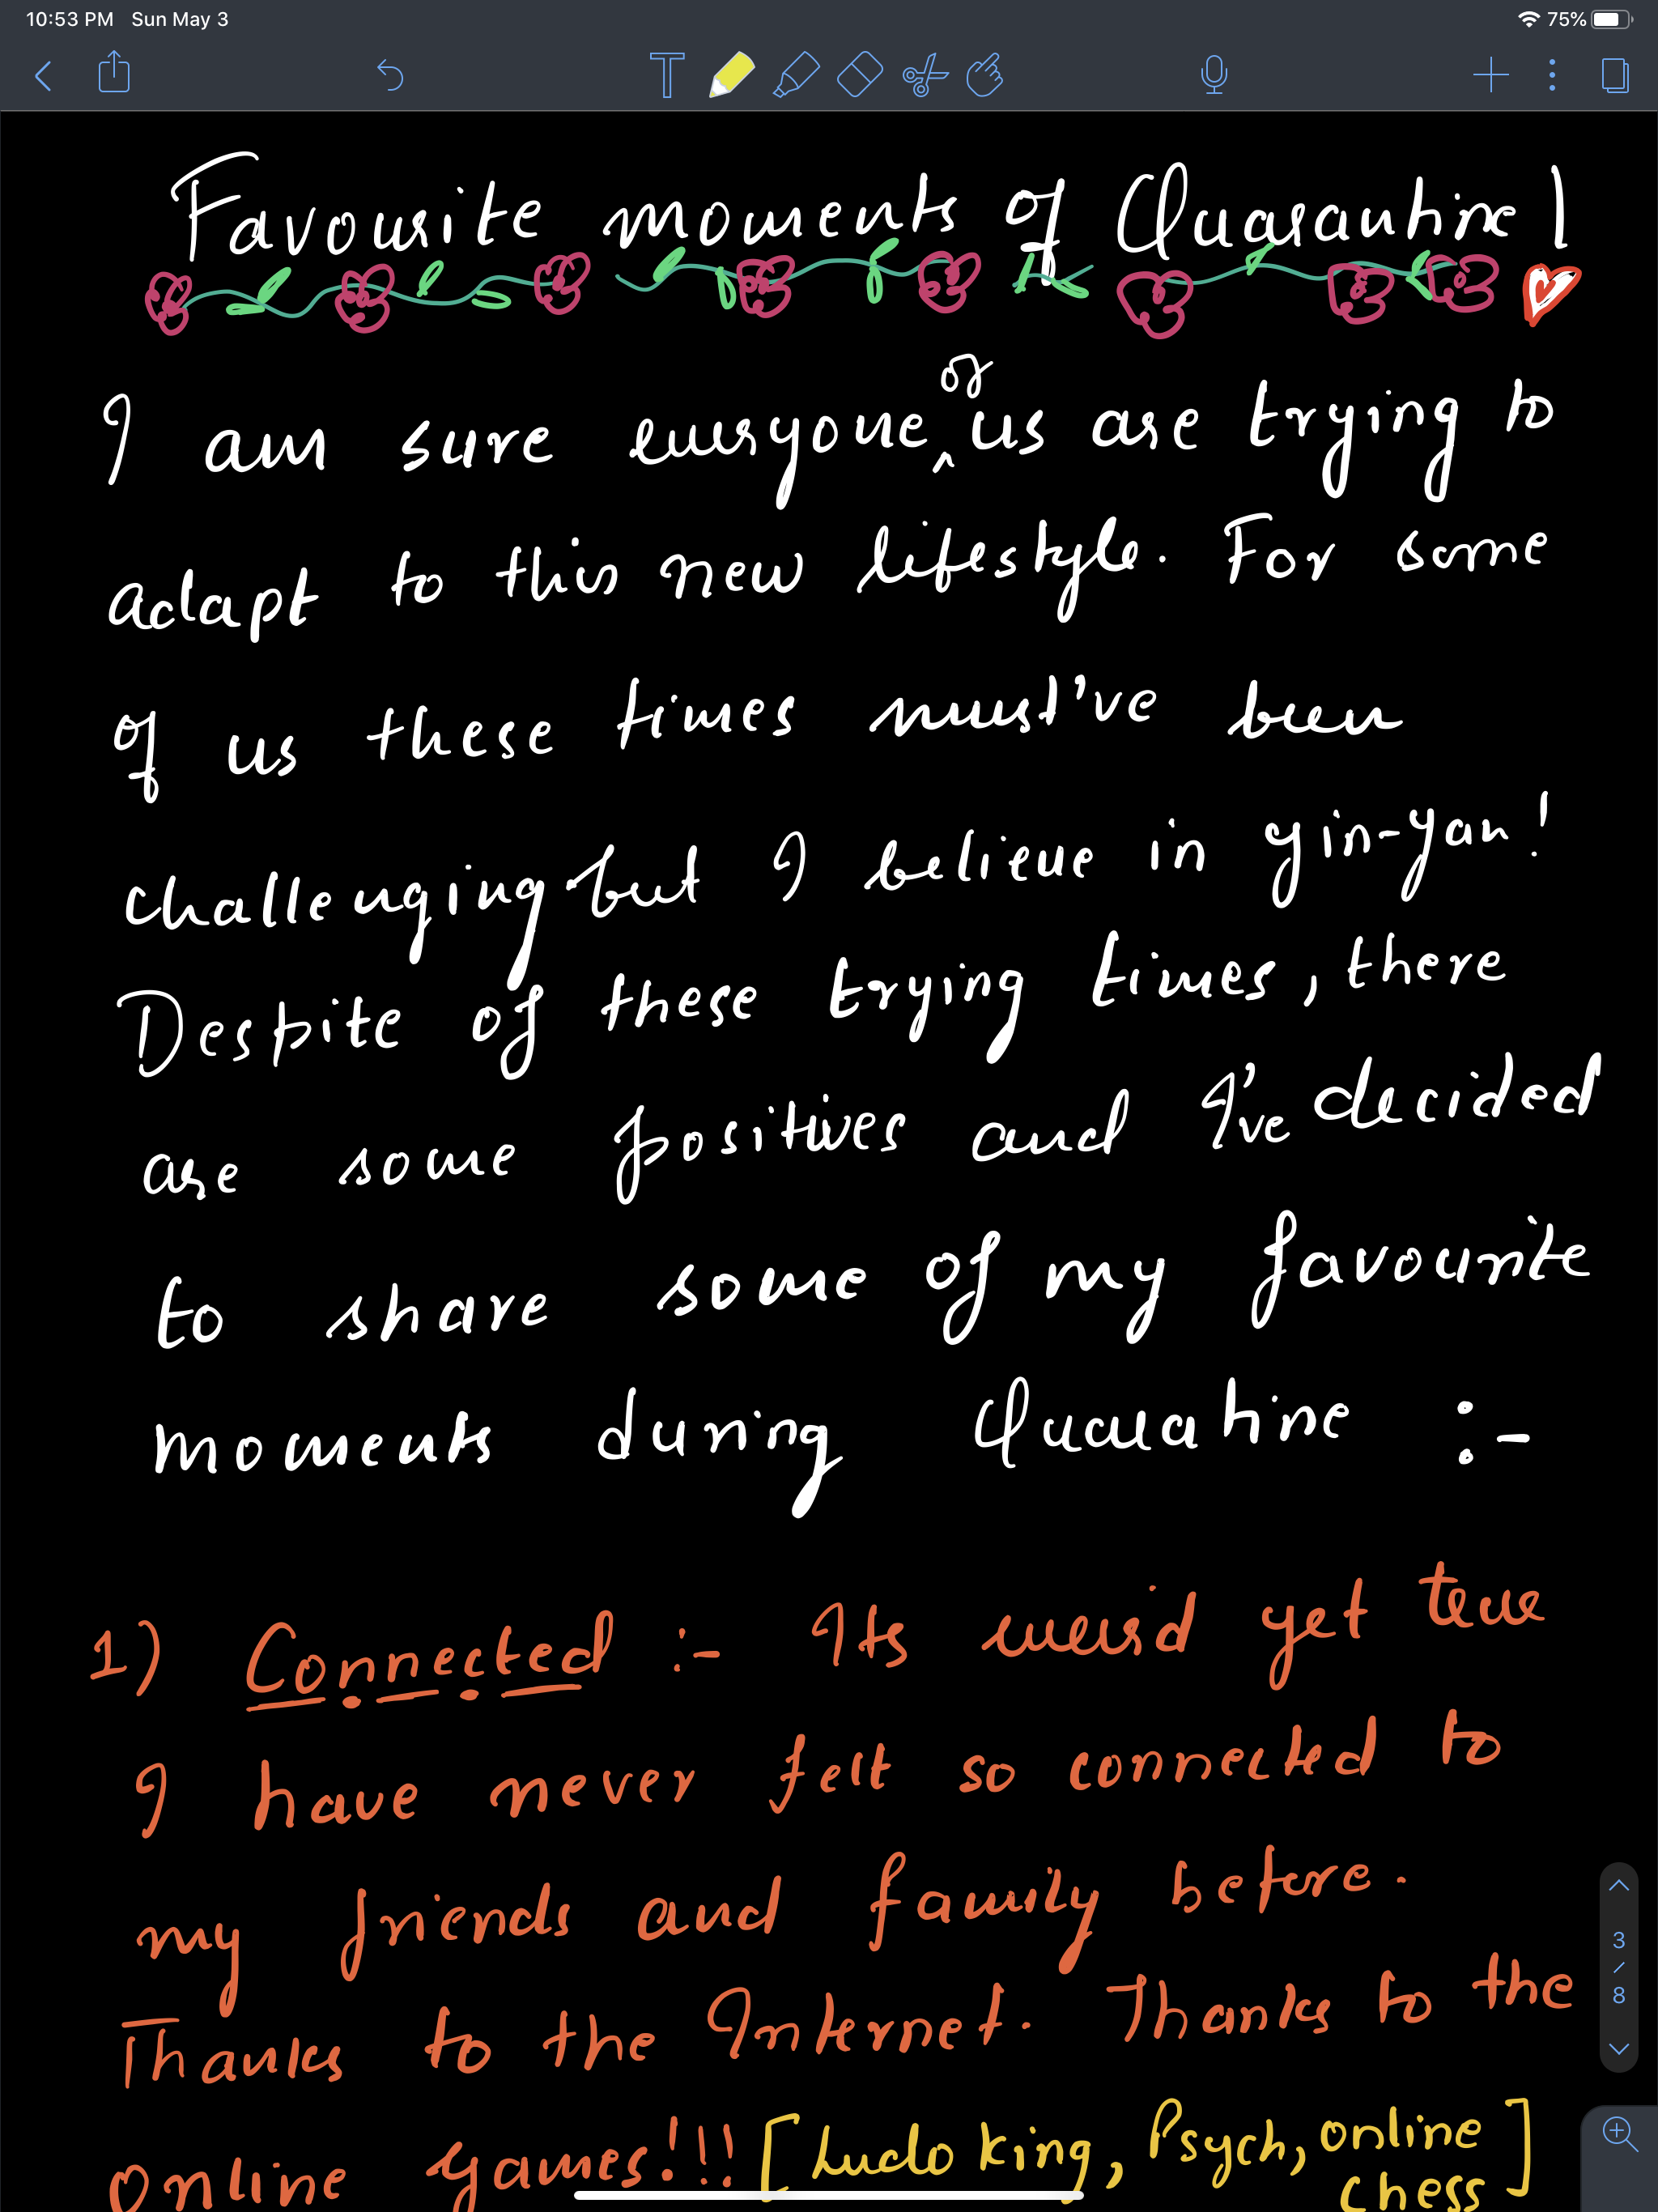 10:53 PM Sun May 3 75%
Favourite moments of Quarantine!
I am sure everyone of us are trying to
adapt to this new lifestyle. For some
of us these times must've been
challenging but I believe in yin-yan!
Despite of these trying times, there
are some positives and I've decided
to share some of my favourite
moments during Quaratine :-
1) Connected :- Its weird yet true
I have never felt so connected to
my friends and family before.
Thanks to the Internet. Thanks to the
online games!!! [Ludo king, Psych, online
chess]
3
/
8